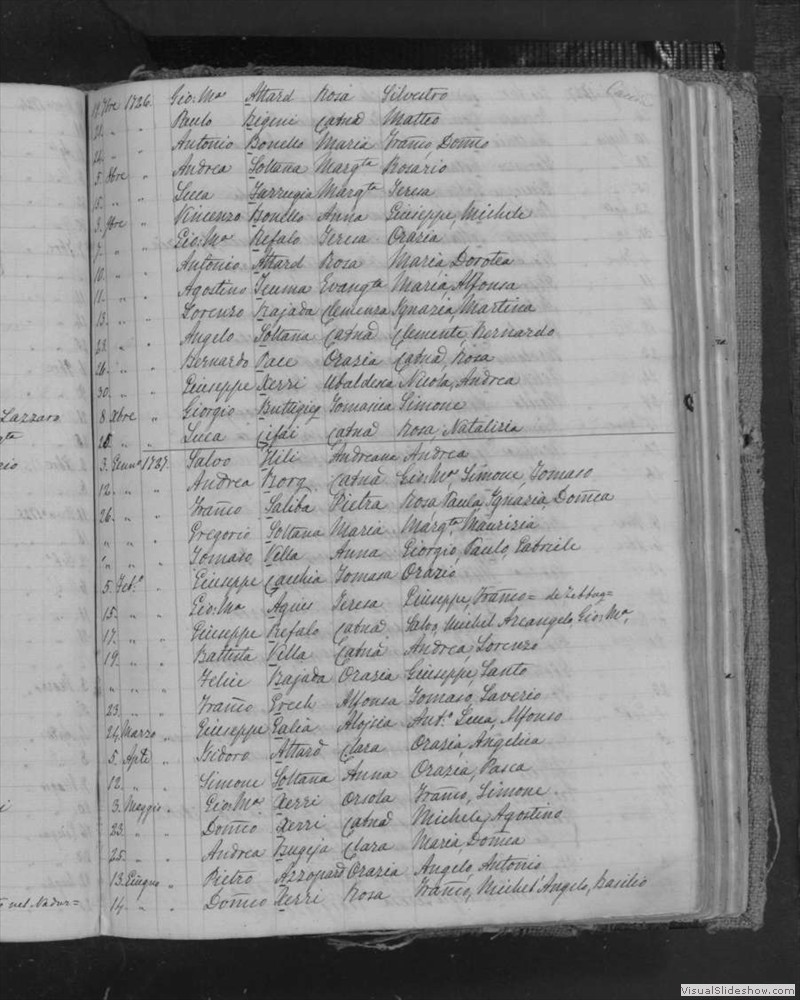 18. 7bre 1726. Gio: Mᵃ Attard Rosa Silvestro
21. " " Paulo Bigeni Catnā Matteo
" " Antonio Bonello Maria Franco, Domco
5. 8bre " Andrea Soltana Margta Rosario
15. " " Luca Farrugia Margta Teresa
3. 9bre " Vincenzo Bonello Anna Giuseppe, Michele
7. " " Gio: Mᵃ Refalo Teresa Orazia
10. " " Antonio Attard Rosa Maria, Dorotea
11. " " Agostino Teuma Evangta Maria, Alfonsa
13. " " Lorenzo Bajada Clemenza Ignazia, Martina
23. " " Angelo Soltana Catnā Clemente, Bernardo
26. " " Bernardo Pace Orazia Catnā, Rosa
30. " " Giuseppe Xerri Ubaldesca Nicola, Andrea
8 xbre " Giorgio Buttigieg Tomasica Simone
Lazzaro
" " Luca Cifai Catnā Rosa, Natalizia
3. Gennº 1727. Salvo Hili Andreana Andrea
12. " " Andrea Borg Catnā Gio: Mᵃ, Simone, Tomaso
26. " " Franco Saliba Pietra Rosa Paula, Ignazia, Domca
" " " Gregorio Soltana Maria Margta, Maurizia
" " " Tomaso Vella Anna Giorgio, Paulo, Gabriele
5. Feb.º " Giuseppe Cacchia Tomasa Orazio
15. " " Gio: Mᵃ Agius Teresa Giuseppe, Franco = de Zebbug =
17. " " Giuseppe Refalo Catnā Salvo, Michel Arcangelo, Gio: Mᵃ.
19. " " Battista Vella Catnā Andrea, Lorenzo
" " " Felice Bajada Orazia Giuseppe, Santo
23. " " Franco Grech Alfonsa Tomaso, Saverio
24. Marzo " Giuseppe Galia Aloisia Ant.º Luca, Alfonso
5. Aple " Isidoro Attard Clara Orazia, Angelica
12. " " Simone Soltana Anna Orazia, Pasca
3. Maggio " Gio: Mᵃ Xerri Orsola Franco, Simone
23. " " Domco Xerri Catnā Michele, Agostino
25. " " Andrea Bugeja Clara Maria, Domca
13. Giugno " Pietro Azzopard Orazia Angelo, Antonio
14. " " Domco Xerri Rosa Franco, Michel'Angelo, Basilio
nel Nadur =
VisualSlideshow.com